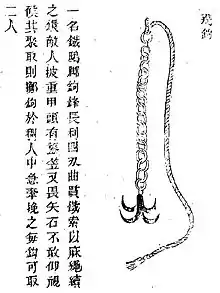 飛鉤
一名鐵鴟脚鉤鋒長利四刃曲貫鐵索以麻繩續
之敵人披重甲頭有笠又畏矢石不敢仰視
候其聚取則擲鉤於稠人中急牽挽之每鉤可取
二人